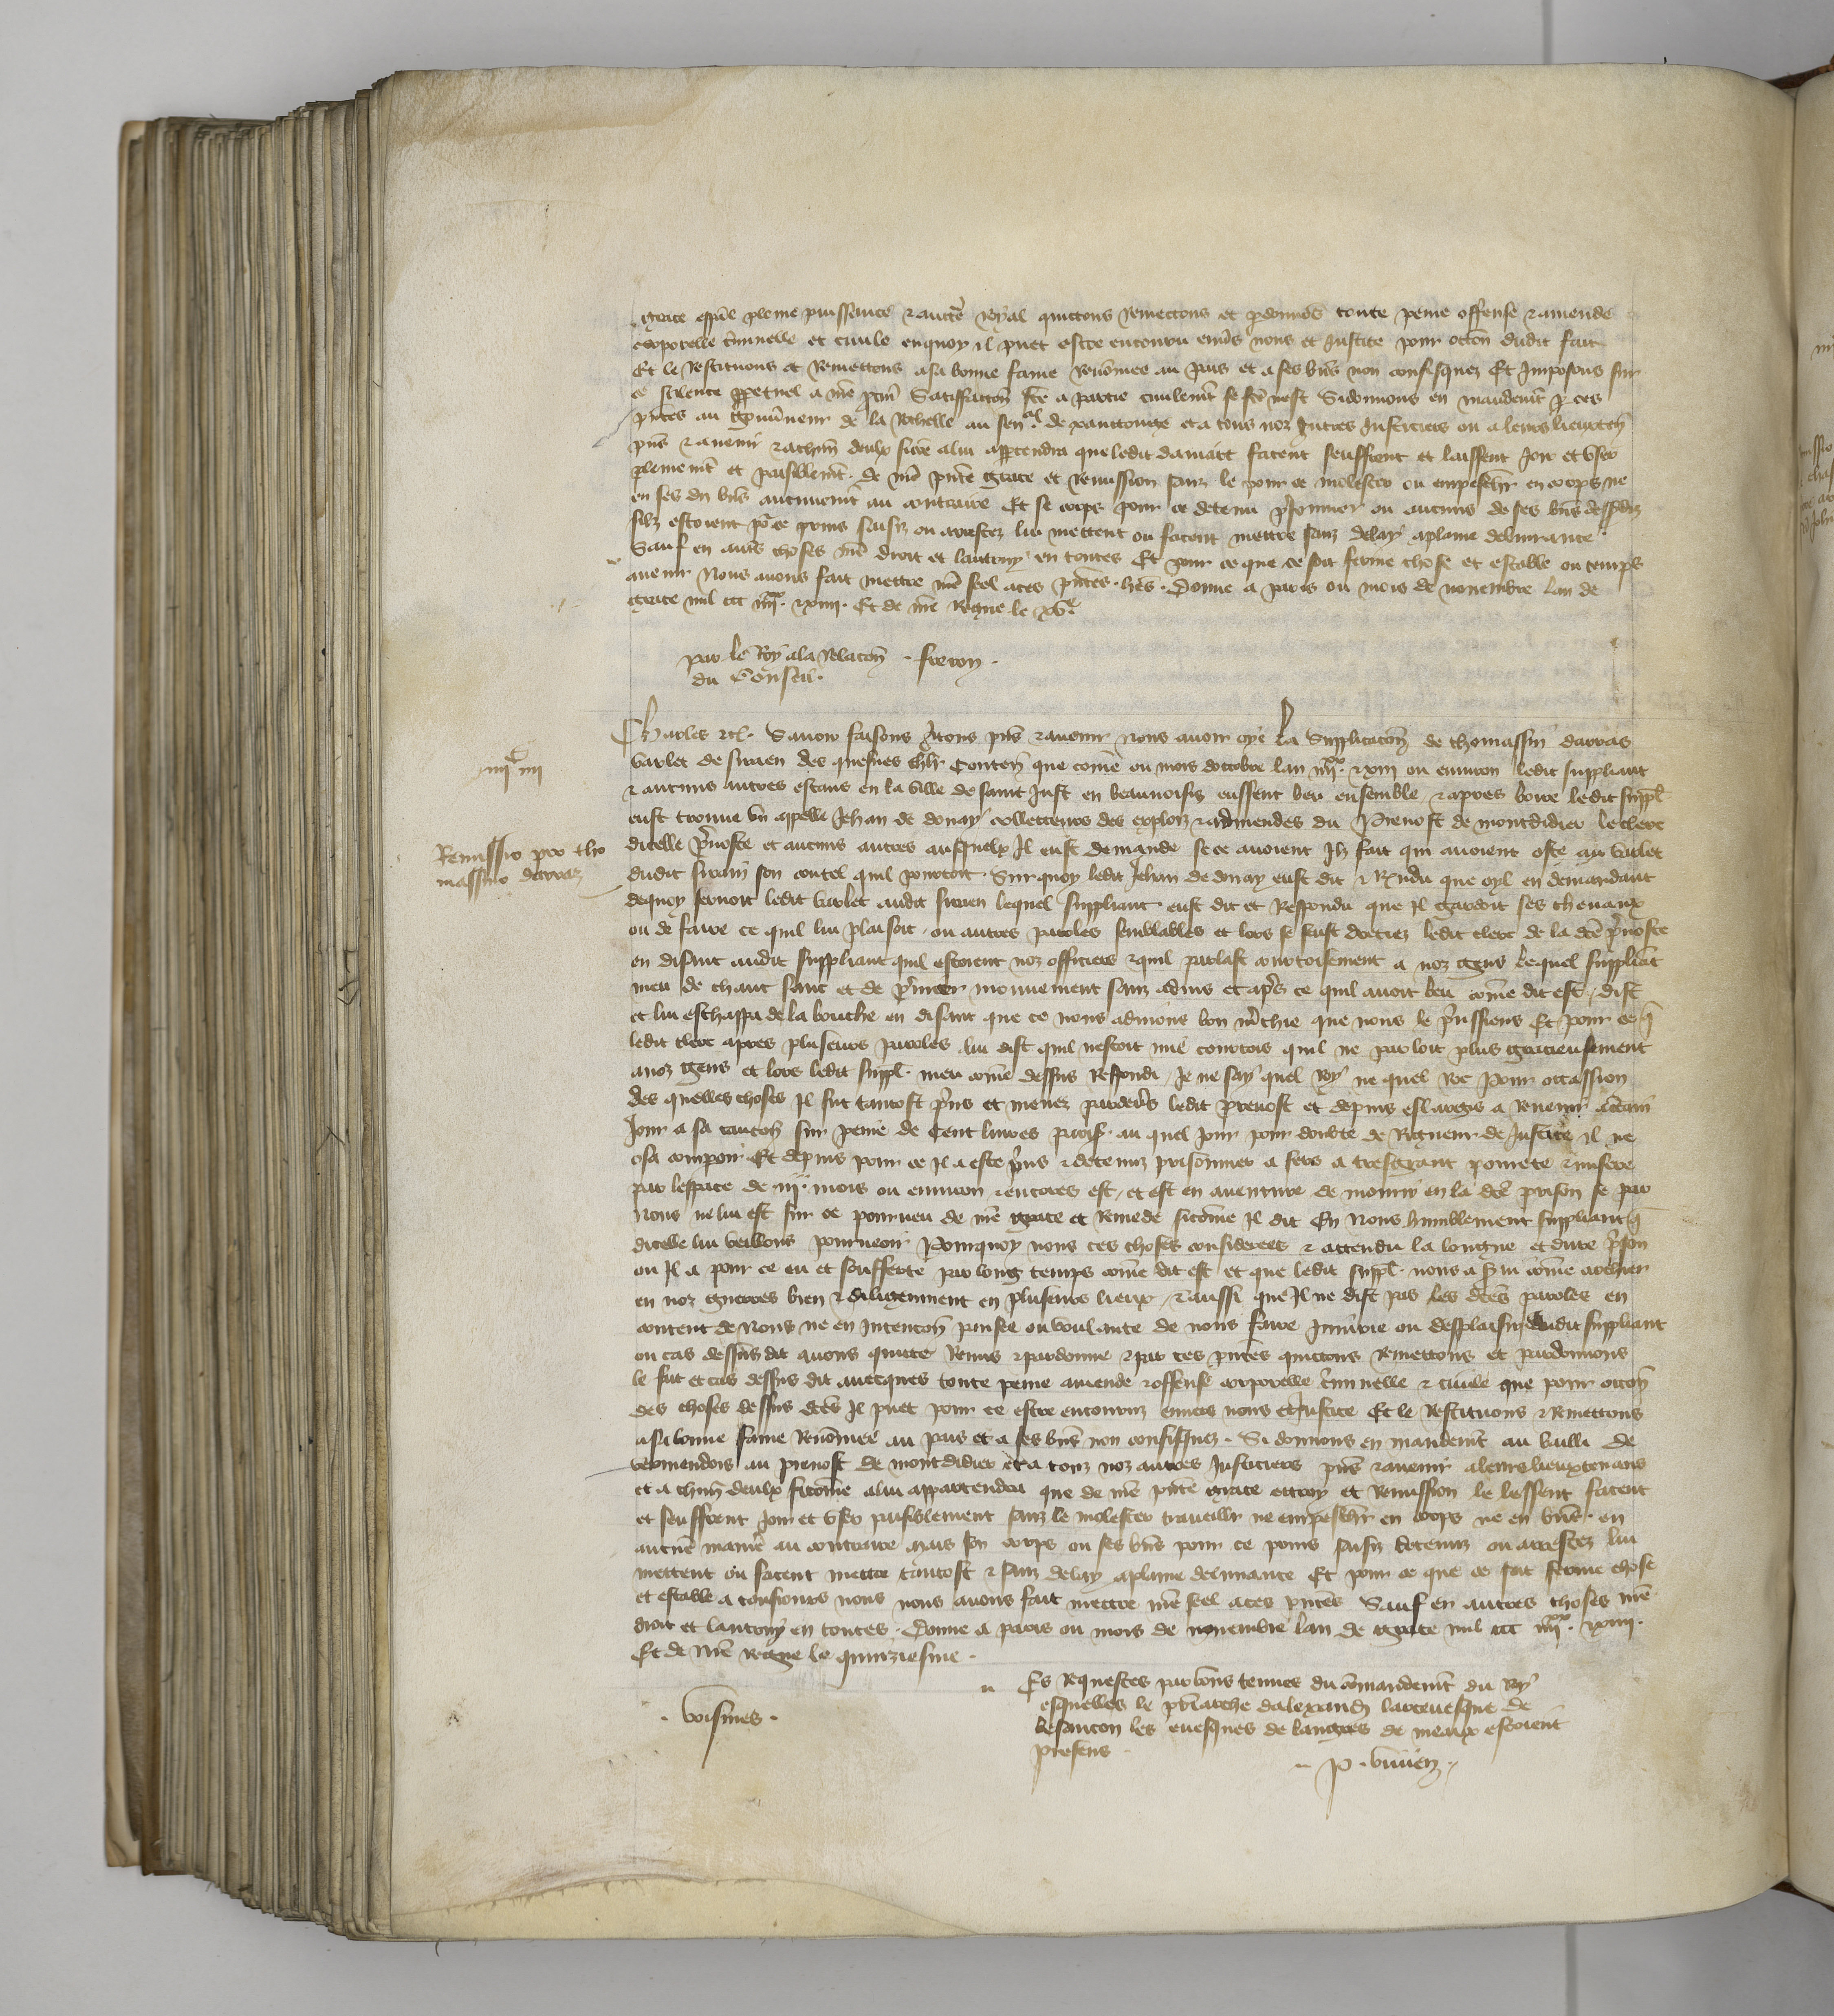 grace espāl pleine puissance & auctē royal quictons remectons et pdonnōs toute peine offense & amende
corporelle c̄iminelle et civile enquoy il puet estre encouru env̄s nous et Justice pour occōn dudit fait
Et le Restituons et Remettons a sa bonne fame renōmee au pais et a ses bn̄s non confisquez Et Imposons sur
ce scilence ppetuel a nr̄e pcur̄ Satisfaccōn fc̄e a partie civilemt̄ se fc̄e nest Si donnons en mandemt̄ p ces
pn̄tes au gouv̄neur de la Rochelle au sen̄al de xanctonge et a tous noz autres Justiciers ou a leurs lieuxten̄
pn̄s & avenir & a chūn deulx sicōe a lui apptendra que ledit facent seuffrent et laissent Joir et user
plainemt̄ et paisiblemt̄ de nr̄e pn̄te grace et remission sanz le pour ce molester ou empeschr̄ en corps ne
en ses diz bn̄s aucunemt̄ au contraire Et se corps pour ce detenu p̄sonnier ou aucuns de ses bn̄s dessusdiz
silz estoient pr̄ ce prins saisiz ou arrestez lui mettent ou facent mettre sanz delay a plaine delivrance
Sauf en autr̄s choses nr̄e droit et lautruy en toutes Et pour ce que ce soit ferme chose et estable ou temps
avenir Nous avons fait mettre nr̄e seel a ces pn̄tes l̄res. Donne a paris ou mois de novembre lan de
grace mil ccc iiiixx. & xiiii. Et de nr̄e Regne le xve.
par le Roy a la Relacōn . freron .
du Conseil.
Charles &c̄. Savoir faisons a tous pn̄s & avenir nous avoir oye La Supplicacōn de thomassin darras
varlet de sivaen des quesnes chlr̄ Conten̄ que cōme ou mois doctobre lan iiiixx. & xiii ou environ ledit suppliant
& aucuns autres estans en la ville de saint Just en beauvoisis eussent beu ensemble & apres boire ledit suppl̄
eust trouve un appelle Jehan de donay collecteurs des explois & admendes du prevost de mondidier le clerc
dicelle p̄voste et aucuns autres ausquelx Il eust demande se ce avoient Ilz fait qui avoient oste au varlet
dudit sivain son coutel quil portoit. Sur quoy ledit Jehan de donay eust dit & Rn̄du que oyl en demandant
dequoy servoit ledit varlet audit sivaen lequel suppliant eust dit et Respondu que Il gardoit ses chevaux
ou de faire ce quil lui plaisoit ou autres paroles semblables et lors se feust ledit clerc de la dc̄e p̄voste
en disant audit suppliant quil estoient noz officiers & quil parlast courtoisement a noz gens Lequel suppliāt
meu de chaut sanc et de p̄mier mouvement sanz advis et ap̄s ce quil avoit beu cōme dit est, dist
et lui eschappa de la bouche en disant que ce nous avions bon m̄chie que nous le p̄nssiens Et pour ce q̄
ledit clerc apres pluseurs paroles lui dist quil nestoit mie courtois quil ne parloit plus gracieusement
a noz gens et lors ledit suppl. meu cōme dessus Respondi, Je ne say quel Roy ne quel Roc Pour occassion
des quelles choses Il fut tantost p̄ns et menez pardev̄s ledit prevost et depuis eslargis a Revenir a c̄tain
Jour a sa caucōn sur peine de Cent livres parisẜ. au quel Jour pour doubte de Rigueur de Justice il ne
osa comparoir Et depuis pour ce Il a este p̄ns & detenuz prisonnier a fers a tresgrant povrete & misere
par lespace de iij. mois ou environ & encores est, et est en aventure de mourir en la dc̄e prison se par
Nous ne lui est sur ce pourveu de nr̄e grace et Remede sicōme Il dit En Nous humblement suppliant q̄
dicelle lui veillons pourveoir Pourquoy nous ces choses considerees & attendu la longue et dure p̄son
ou Il a pour ce eu et soufferte par long temps cōme dit est et que ledit suppl̄. nous a s̄vi cōme archier
en noz guerres bien & diliganment en pluseurs lieux & aussi que Il ne dist pas les dc̄es paroles en
content de Nous ne en Intencōn pensee ou voulante de nous faire Injurie ou desplaisir audit suppliant
ou cas dessusdit avons quicte Remis & pardonne & par ces pn̄tes quictons Remettons et pardonnons
le fait et cas dessus dit avecques toute peine amende & offense corporelle c̄iminelle & civile que pour occōn
des choses dessus dc̄es Il puet pour ce estre encouruz envers nous et Justice Et le Restituons & Remettons
a sa bonne fame Renōmee au pais et a ses bn̄s non confisquez. Si donnons en mandemt̄ au bailli de
vermendois au prevost de mondidier et a touz noz autres Justiciers pn̄s & avenir a leurs lieuxtenans
et a chūn deulx sicōme a lui appartendra que de nr̄e pn̄te grace ottroy et Remission le lessent facent
et seuffrent Joir et user paisiblement sanz le molester travaillr̄ ne empeschr̄ en corps ne en bn̄s. en
aucūe manie̅ au contraire mais son corps ou ses bn̄s pour ce prins saisiz detenuz ou arrestez lui
mettent ou facent mettre tantost & sanz delay a plaine delivrance Et pour ce que ce soit ferme chose
et estable a tousjours nous nous avons fait mettre nr̄e seel a ces pn̄tes Sauf en autres choses nr̄e
droit et lautruy en toutes. Donne a paris ou mois de novembre lan de grace mil ccc iiiixx. xiiii.
Et de Nr̄e regne le quinziesme.
iiiic iiii
Remissio pro tho
massino darraz
Es Requestes par vous tenues du c̄omandemt̄ du Roy
esquelles le pr̄iarche dalexandr̄ larcevesque de
besancon les evesques de langres de meaux estoient
presens
. voisines .
P. viviēn